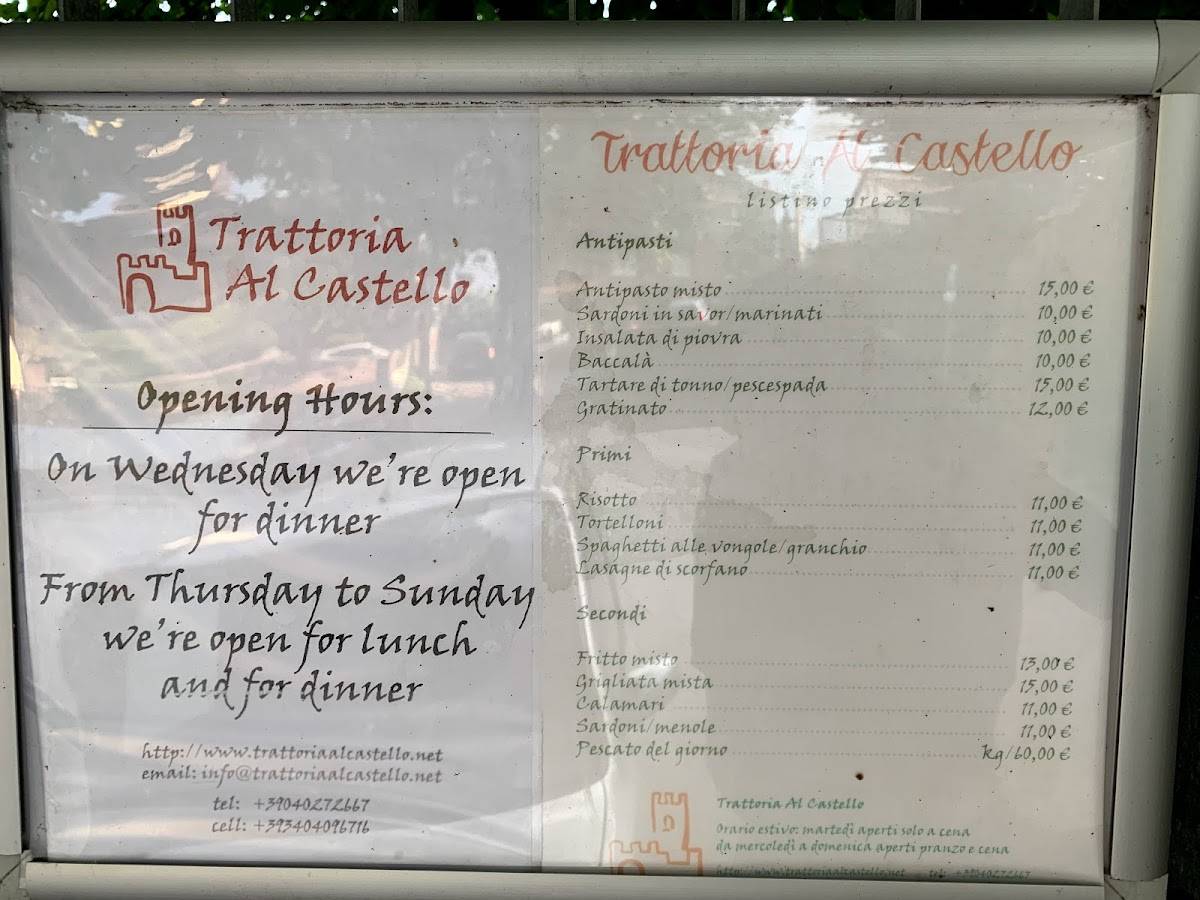 Trattoria
Al Castello
Opening Hours:
On Wednesday we're open
for dinner
From Thursday to Sunday
we're open for lunch
and for dinner
http://www.trattoriaalcastello.net
email: info@trattoriaalcastello.net
tel: +39040272667
cell: +393404096716
Trattoria Al Castello
listino prezzi
Antipasti
Antipasto misto 15,00 €
Sardoni in savor/marinati 10,00 €
Insalata di piovra 10,00 €
Baccalà 10,00 €
Tartare di tonno/pescespada 15,00 €
Gratinato 12,00 €
Primi
Risotto 11,00 €
Tortelloni 11,00 €
Spaghetti alle vongole/granchio 11,00 €
Lasagne di scorfano 11,00 €
Secondi
Fritto misto 13,00 €
Grigliata mista 15,00 €
Calamari 11,00 €
Sardoni/menole 11,00 €
Pescato del giorno kg/60,00 €
Trattoria Al Castello
Orario estivo: martedì aperti solo a cena
da mercoledì a domenica aperti pranzo e cena
http://www.trattoriaalcastello.net tel: +39040272667